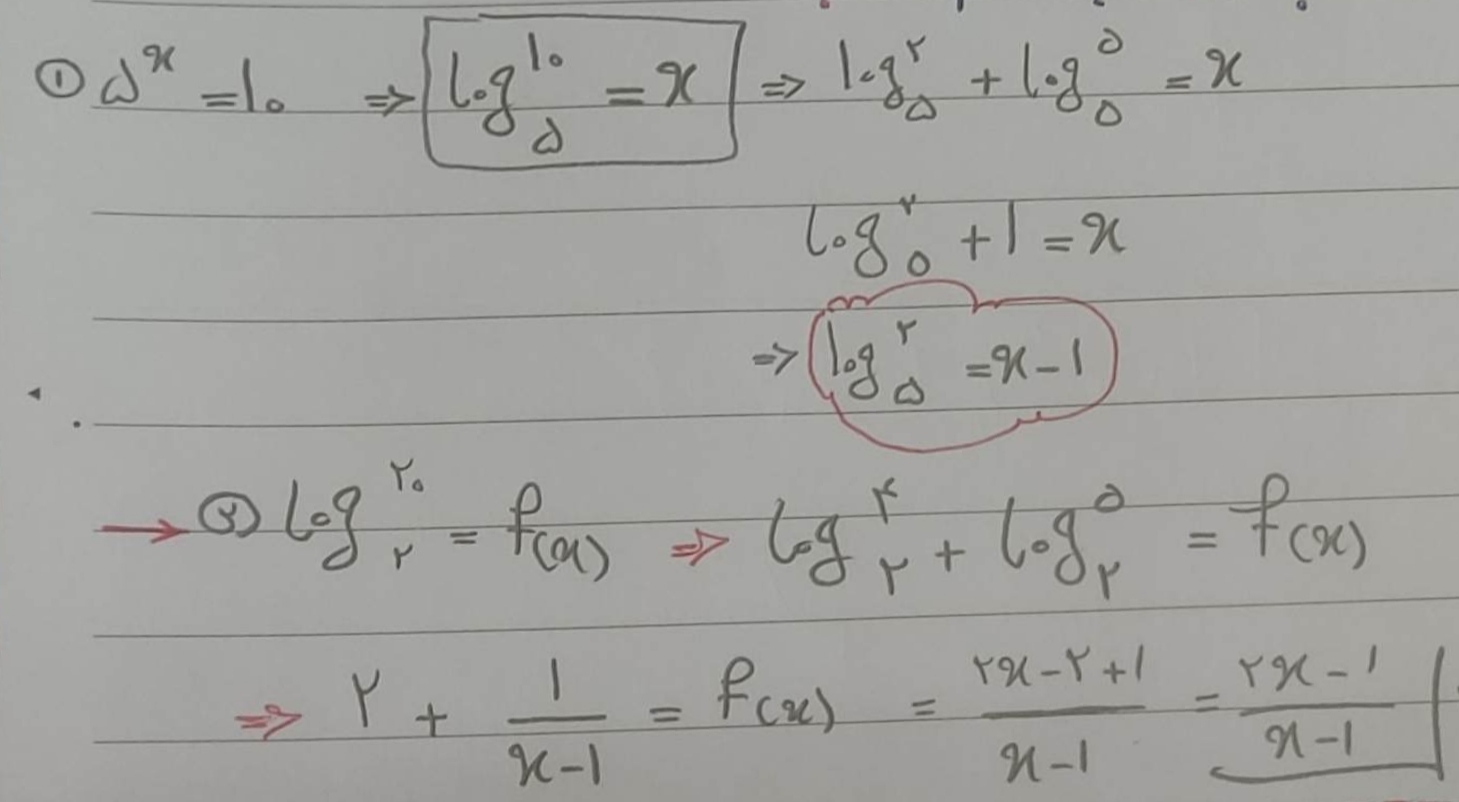 ① ۵^x = ۱۰ ⇒ log_۵^۱۰ = x ⇒ log_۵^۲ + log_۵^۵ = x
log_۵^۲ + ۱ = x
⇒ log_۵^۲ = x - ۱
→ ② log_۲^۲۰ = f(x) ⇒ log_۲^۴ + log_۲^۵ = f(x)
⇒ ۲ + ۱/(x-۱) = f(x) = (۲x-۲+۱)/(x-۱) = (۲x-۱)/(x-۱)